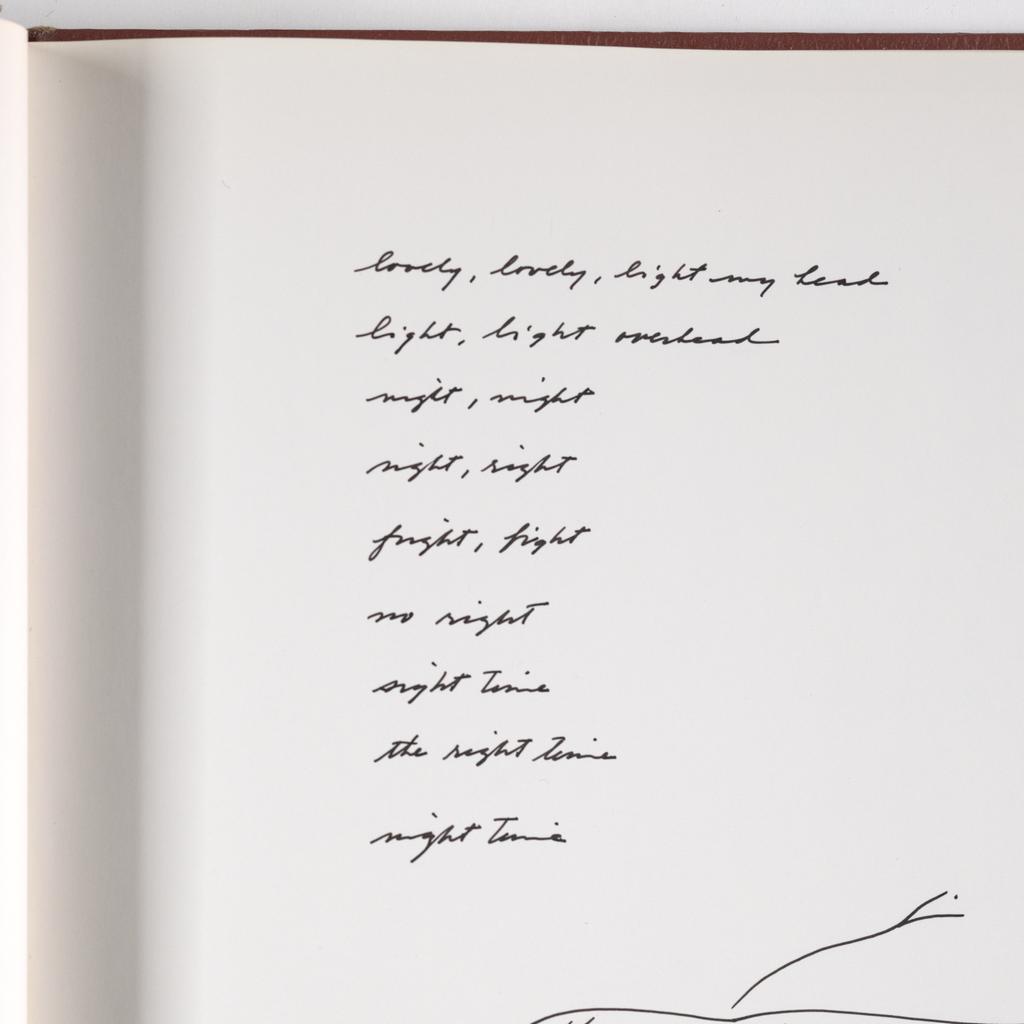 lovely, lovely, light my head
light, light overhead
night, night
night, right
fright, fight
no right
sight time
the right time
night time